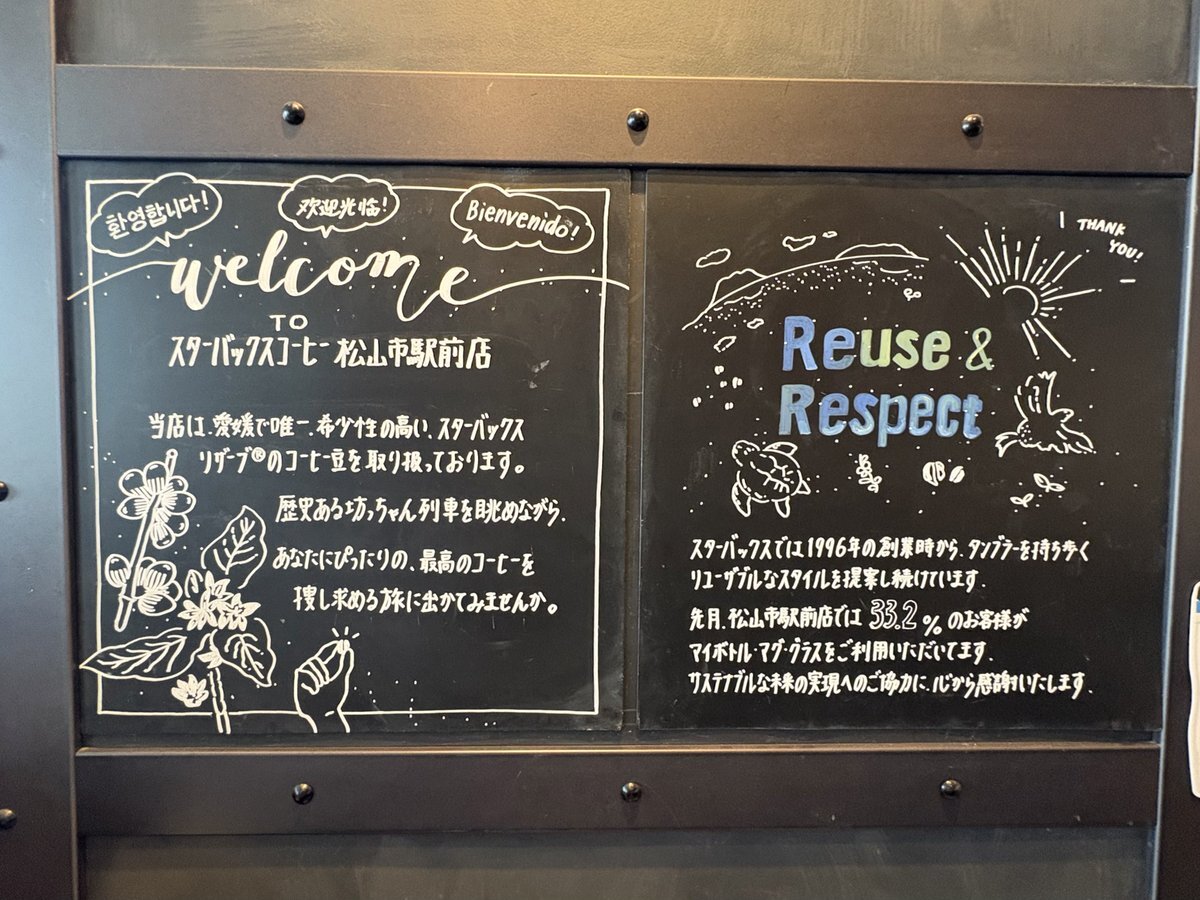 환영합니다!
欢迎光临!
Bienvenido!
welcome
TO
スターバックスコーヒー 松山市駅前店
当店は、愛媛で唯一、希少性の高い、スターバックス
リザーブ®のコーヒー豆を取り扱っております。
歴史ある坊っちゃん列車を眺めながら、
あなたにぴったりの、最高のコーヒーを
捜し求める旅に出かてみませんか。
THANK
YOU!
Reuse &
Respect
スターバックスでは1996年の創業時から、タンブラーを持ち歩く
リユーザブルなスタイルを提案し続けています。
先月、松山市駅前店では 33.2 %のお客様が
マイボトル・マグ・グラスをご利用いただいてます。
サステナブルな未来の実現へのご協力に、心から感謝いたします。